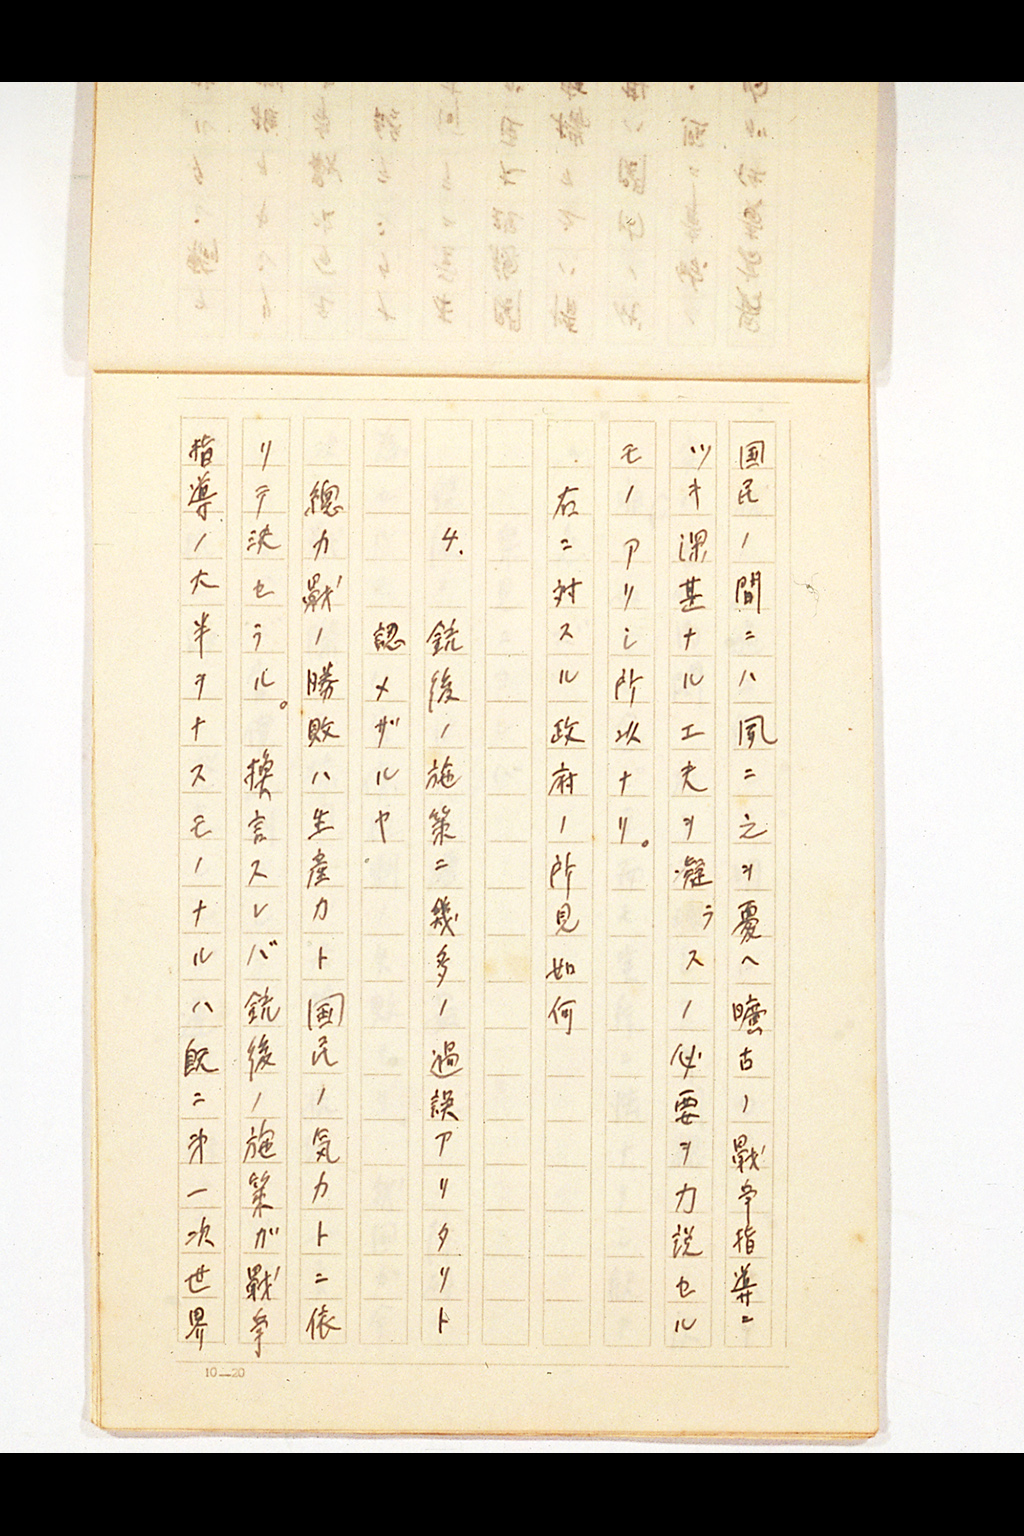 国民ノ間ニハ夙ニ之ヲ憂ヘ曠古ノ戰争指導ニ
ツキ深甚ナル工夫ヲ凝ラスノ必要ヲ力説セル
モノアリシ所以ナリ。
右ニ対スル政府ノ所見如何
4. 銃後ノ施策ニ幾多ノ過誤アリタリト
認メザルヤ
總力戰ノ勝敗ハ生産力ト国民ノ気力トニ依
リテ決セラル。換言スレバ銃後ノ施策ガ戰争
指導ノ大半ヲナスモノナルハ既ニ第一次世界
10—20